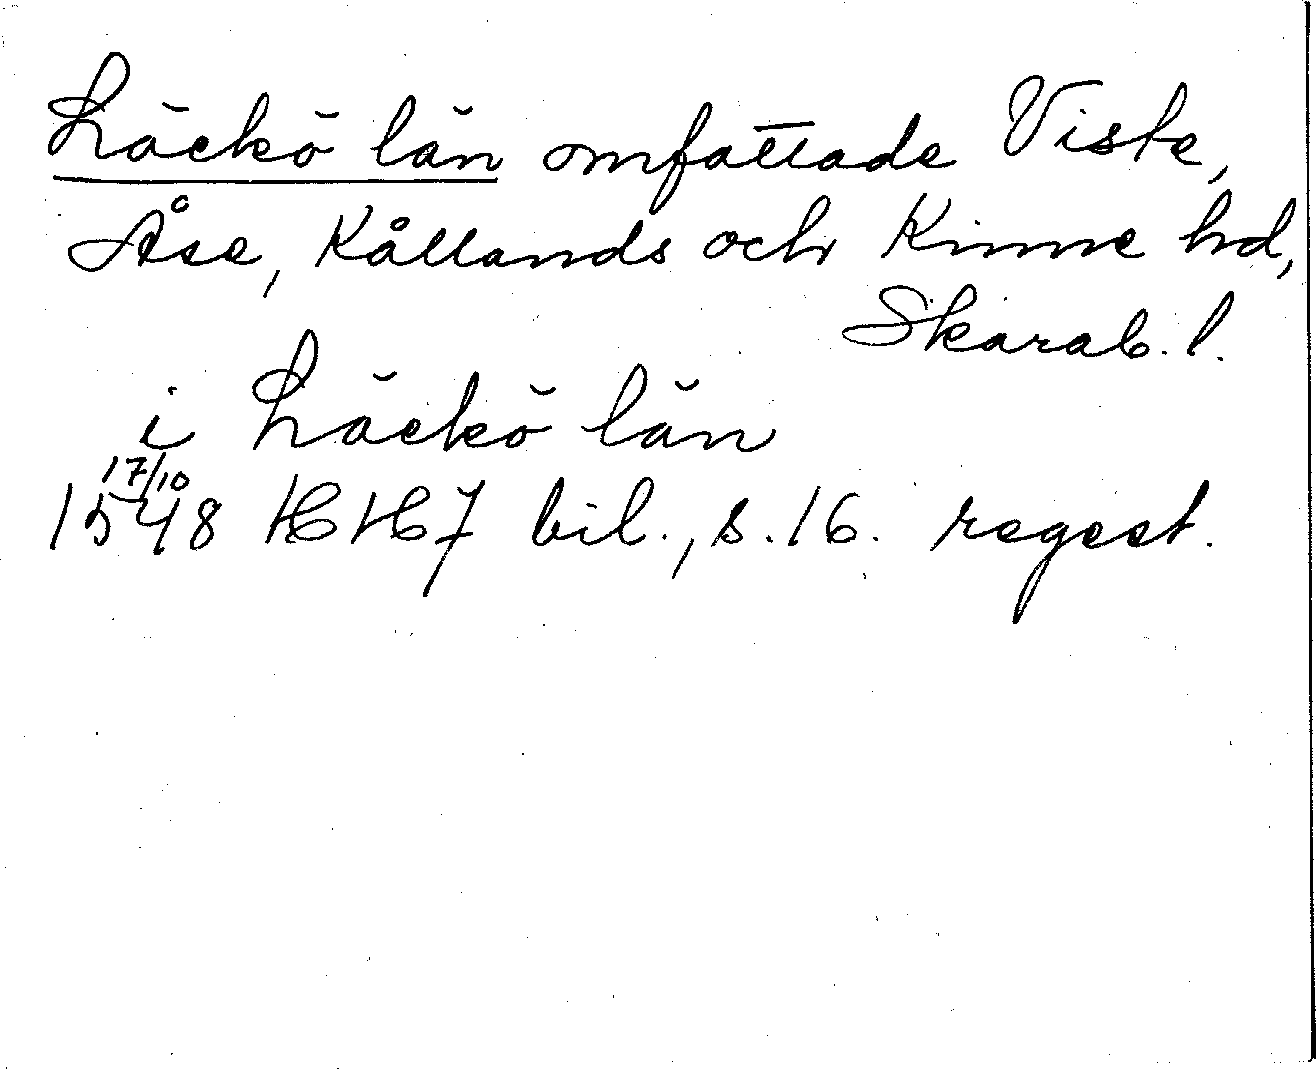 Läckö län omfattade Viste,
Åse, Kållands och Kinne hd,
Skarab. l.
i Läckö län
17/10
1548 HH 7 bil., s. 16. regest.